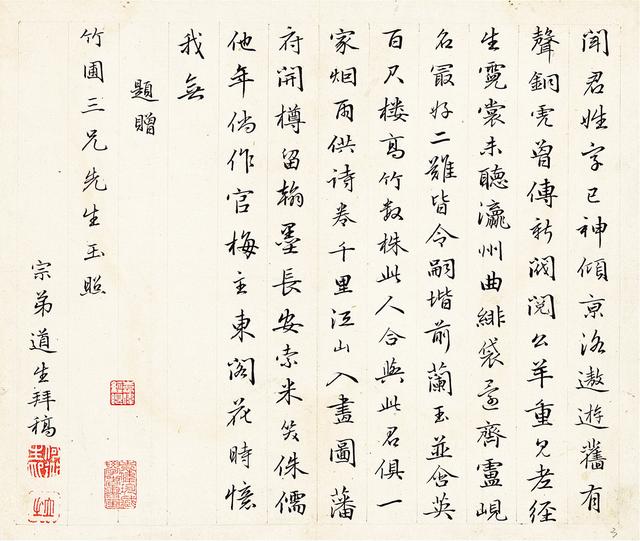 聞君姓字已神傾京洛遨遊舊有
聲銅雀曾傳新閥閱公羊重見老經
生霓裳未聽瀛州曲緋袋還齊靈峴
名最好二難皆令嗣堦前蘭玉並含英
百尺楼高竹数株此人合與此君俱一
家烟雨供诗卷千里江山入畫圖藩
府開樽留翰墨長安索米笑侏儒
他年倘作官梅主東閣花時憶
我無
題贈
竹圃三兄先生玉照
宗弟道生拜稿